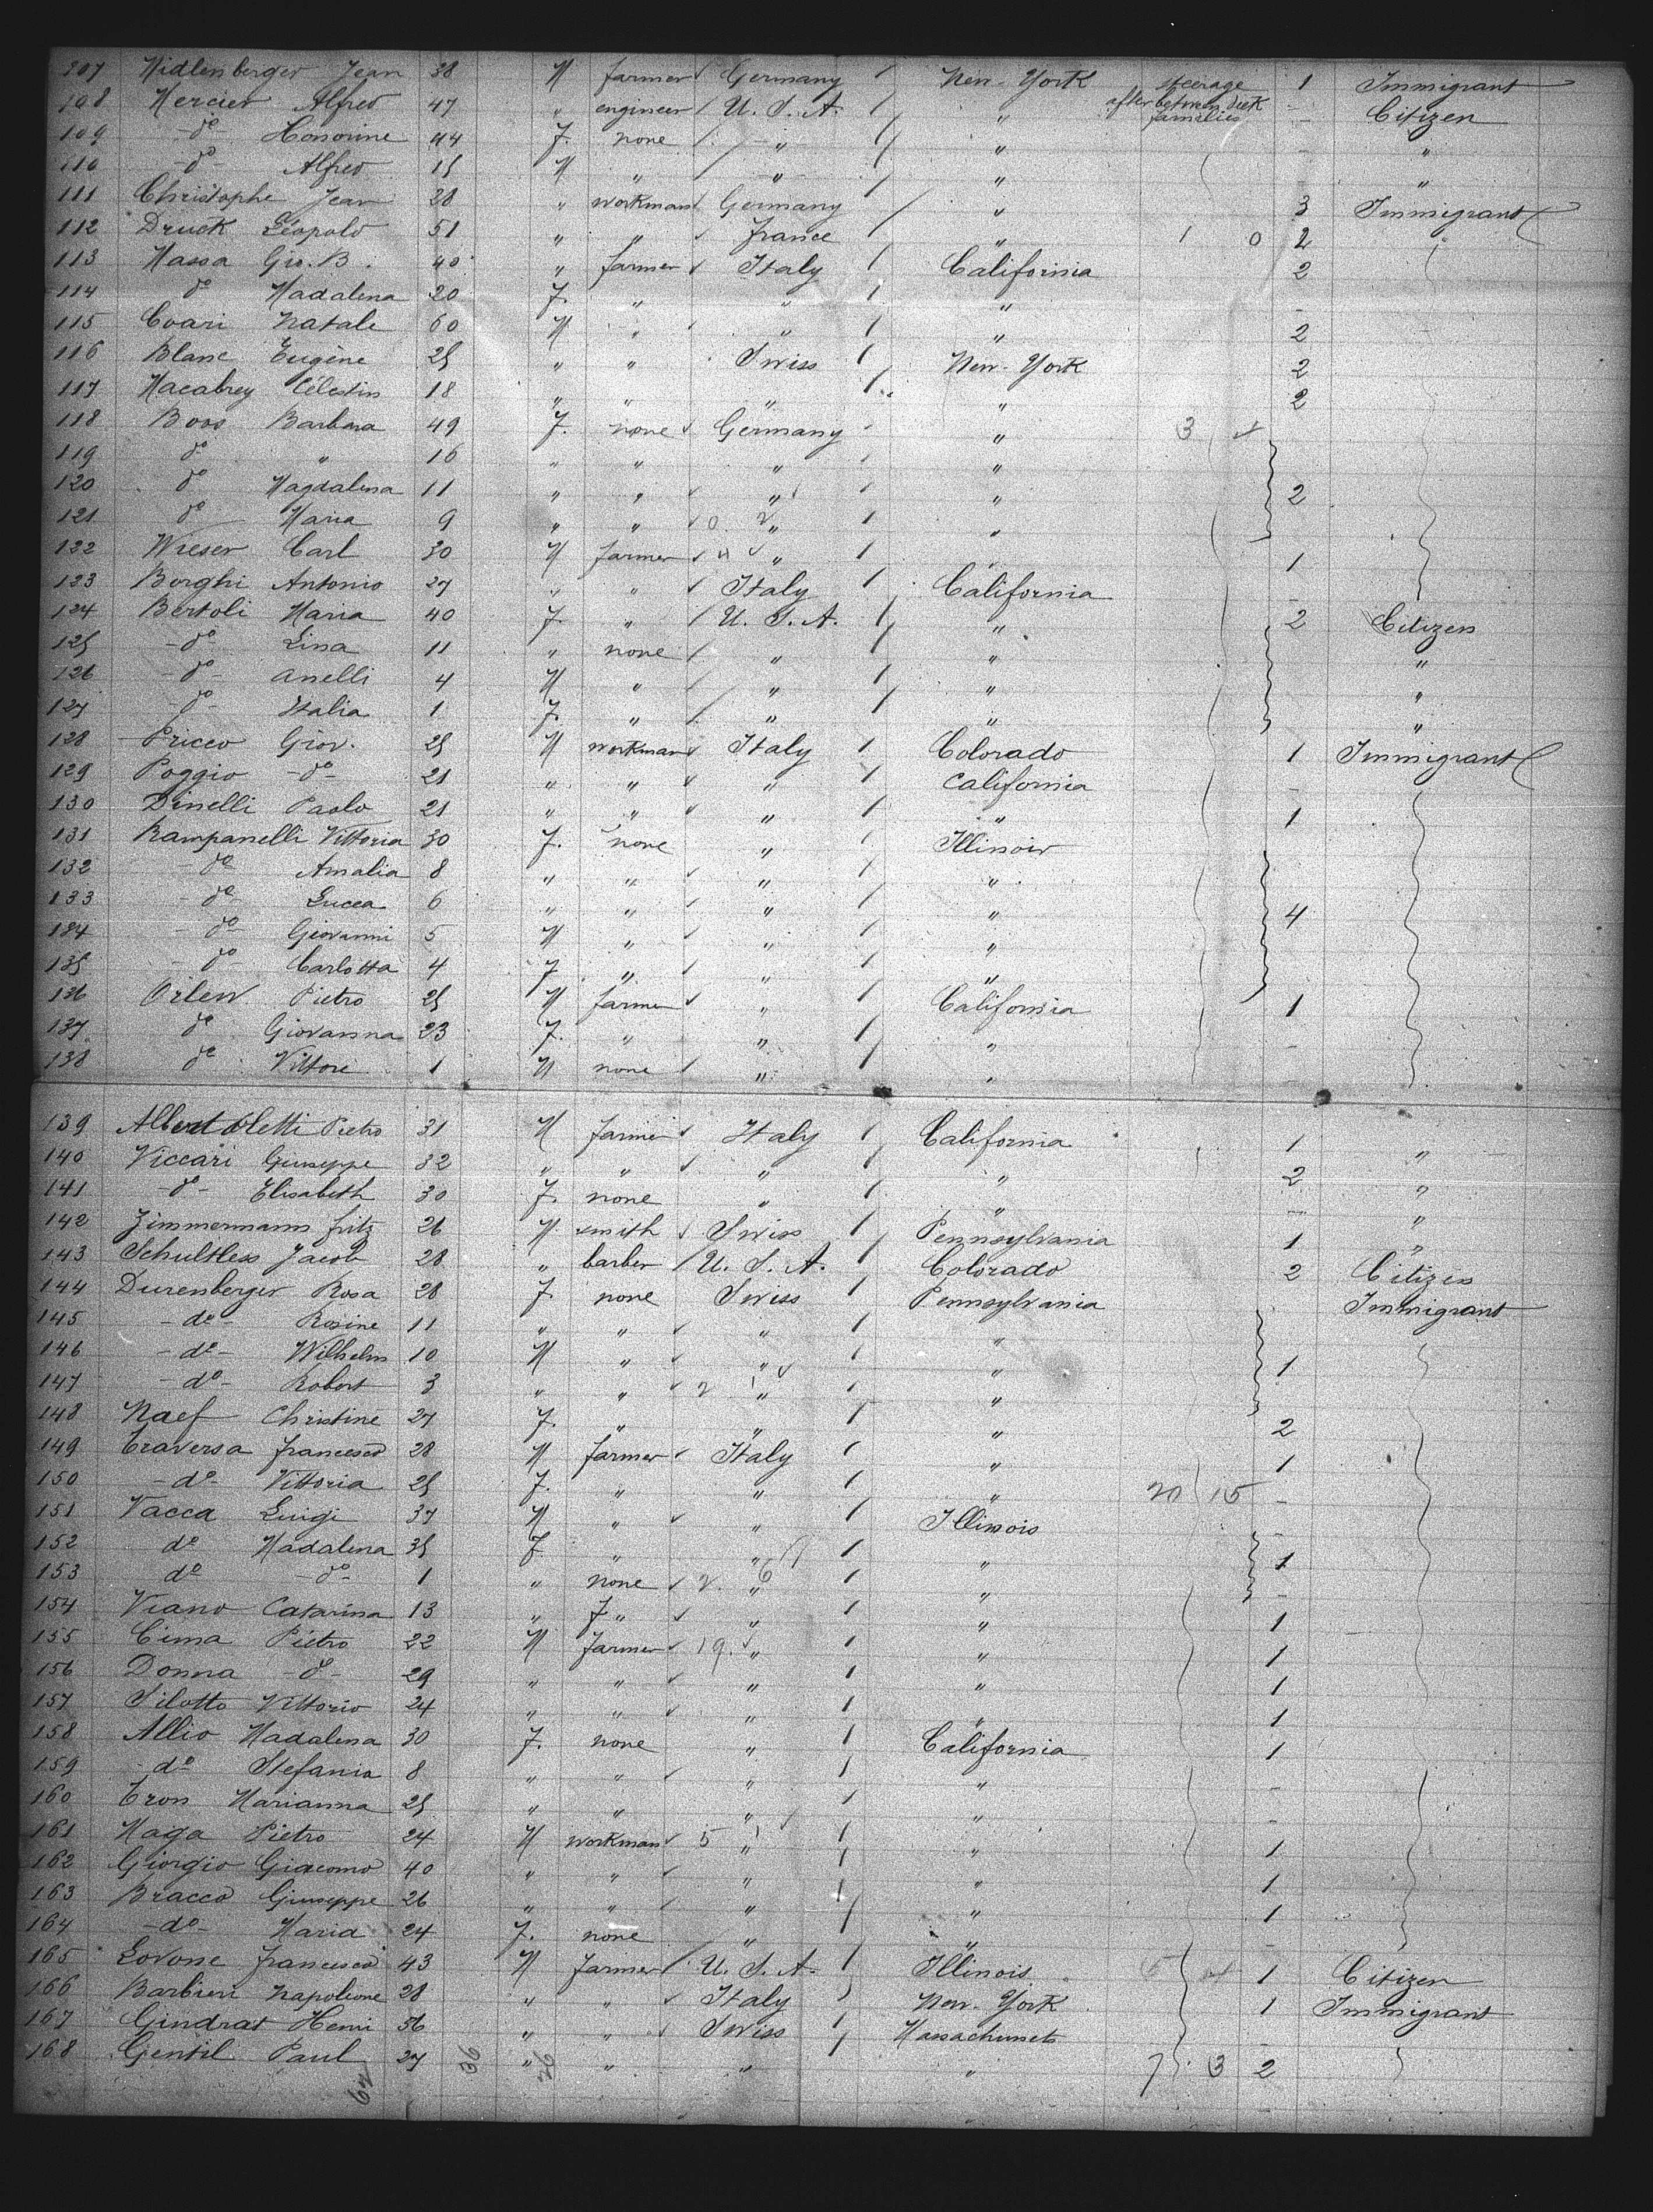 107 Midlenberger Jean 38 M farmer Germany New-York steerage 1 Immigrant
108 Mercier Alfred 47 " engineer U. S. A. " after between deck families - Citizen
109 -do- Honorine 44 F. none " " - "
110 -do- Alfred 15 M " " " "
111 Christophe Jean 28 " workman Germany " 3 Immigrant
112 Druck Léopold 51 " " France " 1 0 2 "
113 Massa Gio. B. 40 " farmer Italy California 2
114 do Madalena 20 F. " " " -
115 Cvari Natale 60 M " " " 2
116 Blanc Eugène 25 " " Swiss New-York 2
117 Macabrey Célestin 18 " " " " 2
118 Boos Barbara 49 F. none Germany " 3 4
119 do " 16 " " " "
120 do Magdalena 11 " " " " 2
121 do Maria 9 " " " "
122 Wieser Carl 30 M farmer " " 1
123 Borghi Antonio 27 " " Italy California -
124 Bertoli Maria 40 F. " U. S. A. " 2 Citizen
125 -do- Lina 11 " none " " "
126 -do- Anelli 4 M " " " "
127 -do- Italia 1 F. " " " "
128 Pricco Giov. 25 M workman Italy Colorado 1 Immigrant
129 Poggio -do- 21 " " " California -
130 Dinelli Paolo 21 " " " " 1
131 Rampanelli Vittoria 30 F. none " Illinois
132 do Amalia 8 " " " "
133 -do- Lucea 6 " " " " 4
134 -do- Giovanni 5 M " " "
135 -do- Carlotta 4 F " " "
136 Orlew Pietro 25 M farmer " California 1
137 do Giovanna 23 F. " " " -
138 do Vittore 1 M none " "
139 Albertoletti Pietro 31 M farmer Italy California 1 "
140 Viccari Giuseppe 32 " " " " 2 "
141 -do- Elisabeth 30 F. none " " - "
142 Zimmermann Fritz 26 M smith Swiss Pennsylvania 1 "
143 Schultless Jacob 28 " barber U. S. A. Colorado 2 Citizen
144 Durenberger Rosa 28 F. none Swiss Pennsylvania Immigrant
145 -do- Rosine 11 " " " "
146 -do- Wilhelm 10 M " " " 1
147 -do- Robert 3 " " " "
148 Naef Christine 27 F. " " " 2
149 Traversa Francesco 28 M farmer Italy " 1
150 -do- Vittoria 25 F. " " " 20 15 -
151 Vacca Luigi 37 M " " Illinois -
152 do Madalena 35 F " " " 1
153 do -do- 1 " none " " -
154 Viano Catarina 13 " F " " " 1
155 Cima Pietro 22 M farmer " " 1
156 Donna -do- 29 " " " " 1
157 Silotto Vittorio 24 " " " " 1
158 Allio Madalena 30 F. none " California 1
159 do Stefania 8 " " " " -
160 Tron Marianna 25 " " " " -
161 Maga Pietro 24 M workman 5 " " 1
162 Giorgio Giacomo 40 " " " " 1
163 Bracco Giuseppe 26 " " " " 1
164 -do- Maria 24 F. none " " -
165 Lovone Francesco 43 M farmer U. S. A. Illinois 1 Citizen
166 Barbieri Napoleone 28 " " Italy New-York 1 Immigrant
167 Gindrat Henri 56 " " Swiss Massachusets
168 Gentil Paul 27 " " " " 7 3 2
62 36 26